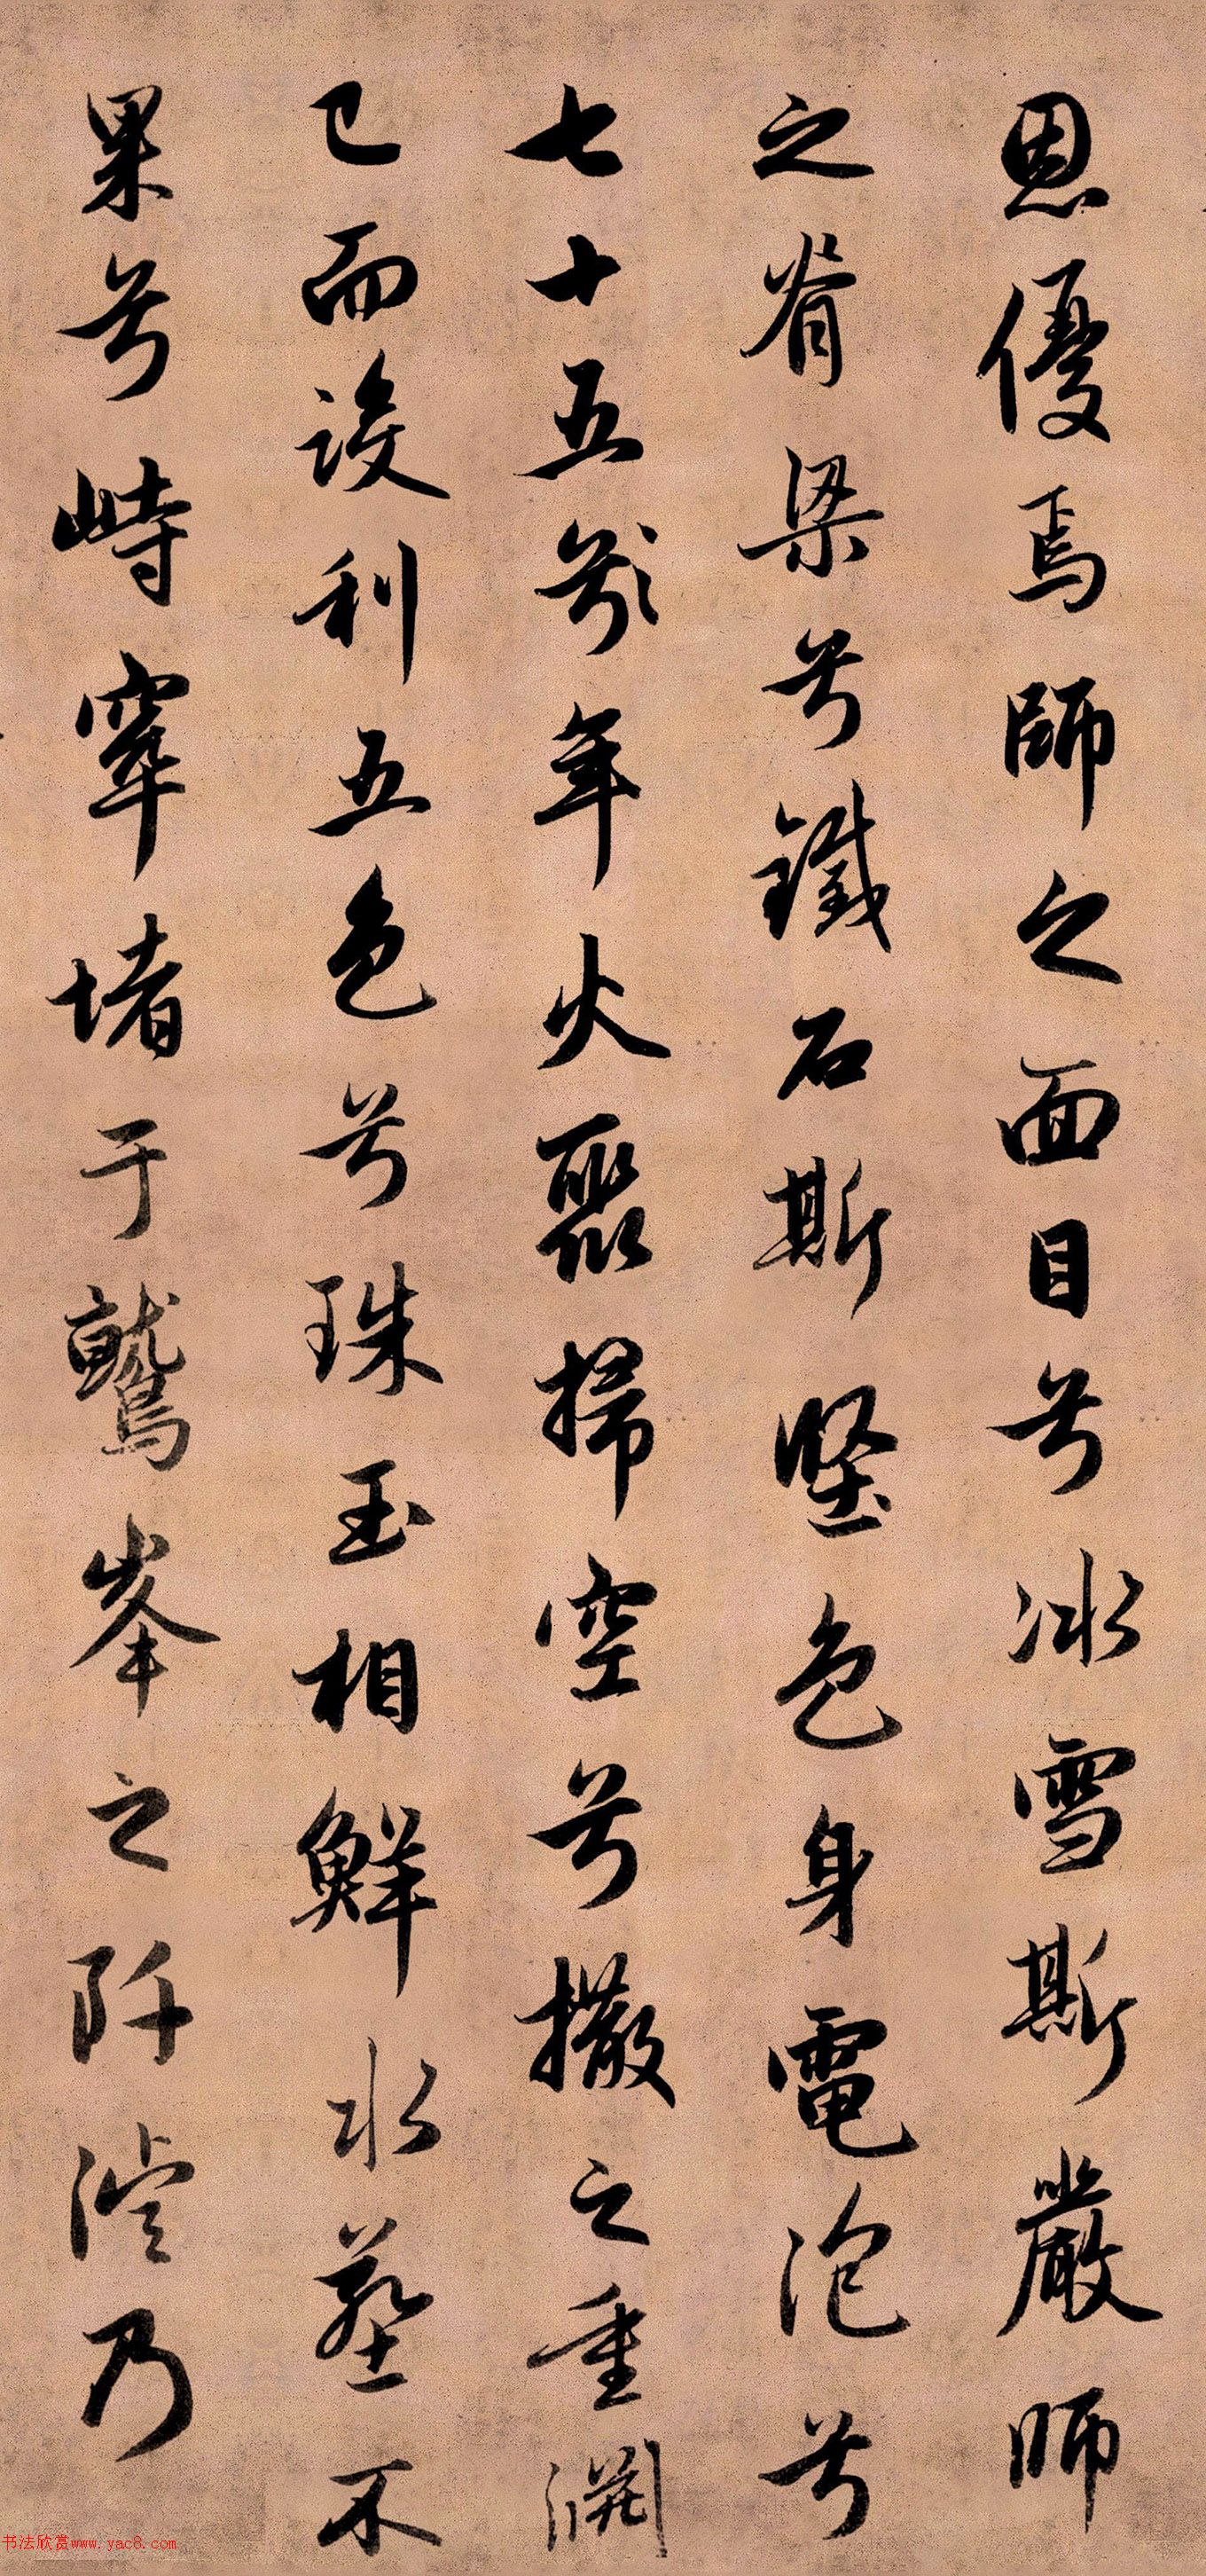 恩優焉師之面目兮冰雪斯嚴師
之脊梁兮鐵石斯堅色身電泡兮
七十五歲年火聚掃空兮撒之重淵
已而设利五色兮珠玉相鮮水葬不
果兮峙窣堵于鷲峯之阡滹乃
书法欣赏www.yac8.com